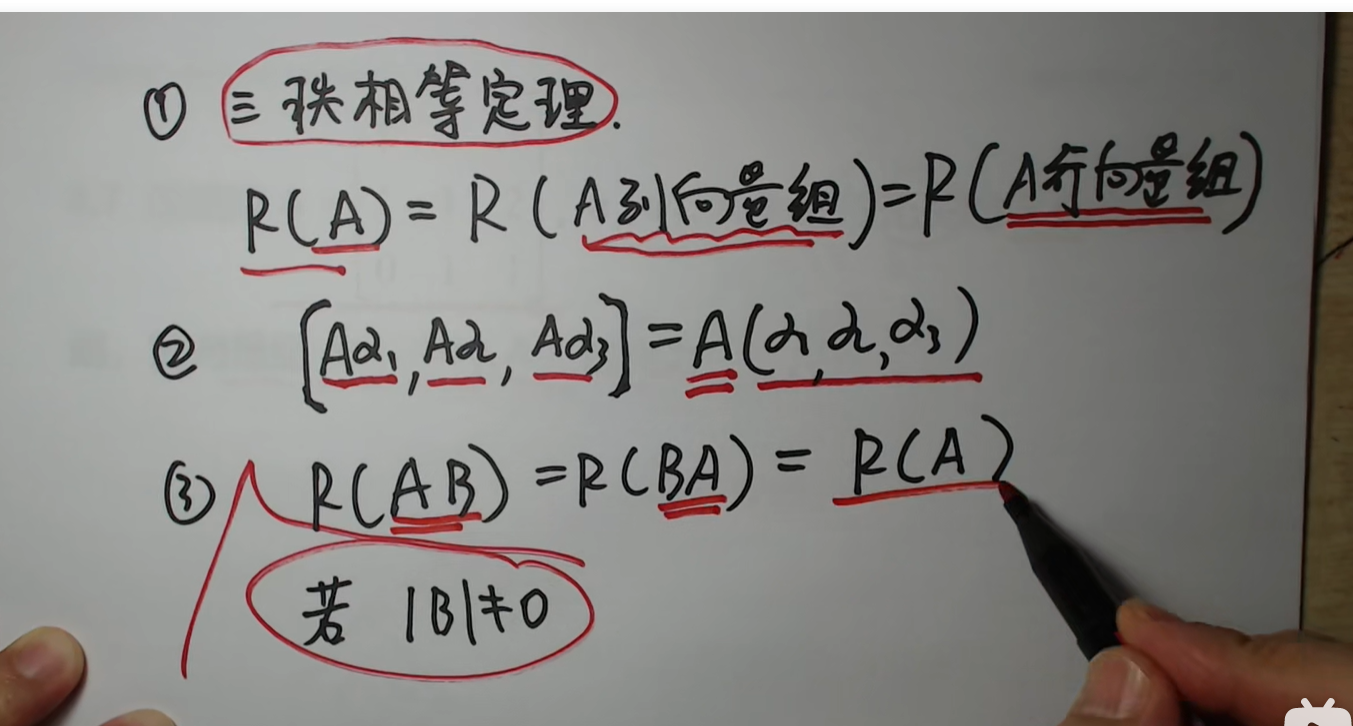 ① 三秩相等定理.
R(A) = R(A列向量组) = R(A行向量组)
② [Aα₁, Aα₂, Aα₃] = A(α₁, α₂, α₃)
③ R(AB) = R(BA) = R(A)
若 |B|≠0